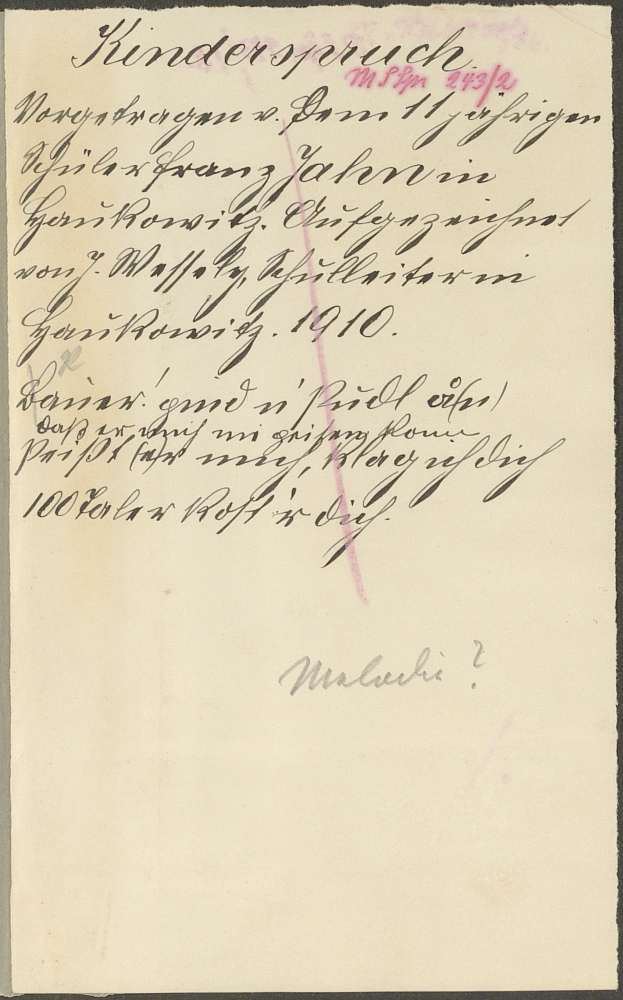 Kinderspruch.
MSLpn 243/2
Vorgetragen v. dem 11 jährigen
Schüler Franz Jahn in
Haukowitz. Aufgezeichnet
von J. Wessely, Schulleiter in
Haukowitz. 1910.
Bauer! pind n' Pudl å(n)
daß er mich ni peißen
Peißt (e)r mich, klag ich dich
100 Taler kost 'r dich.
Melodie?